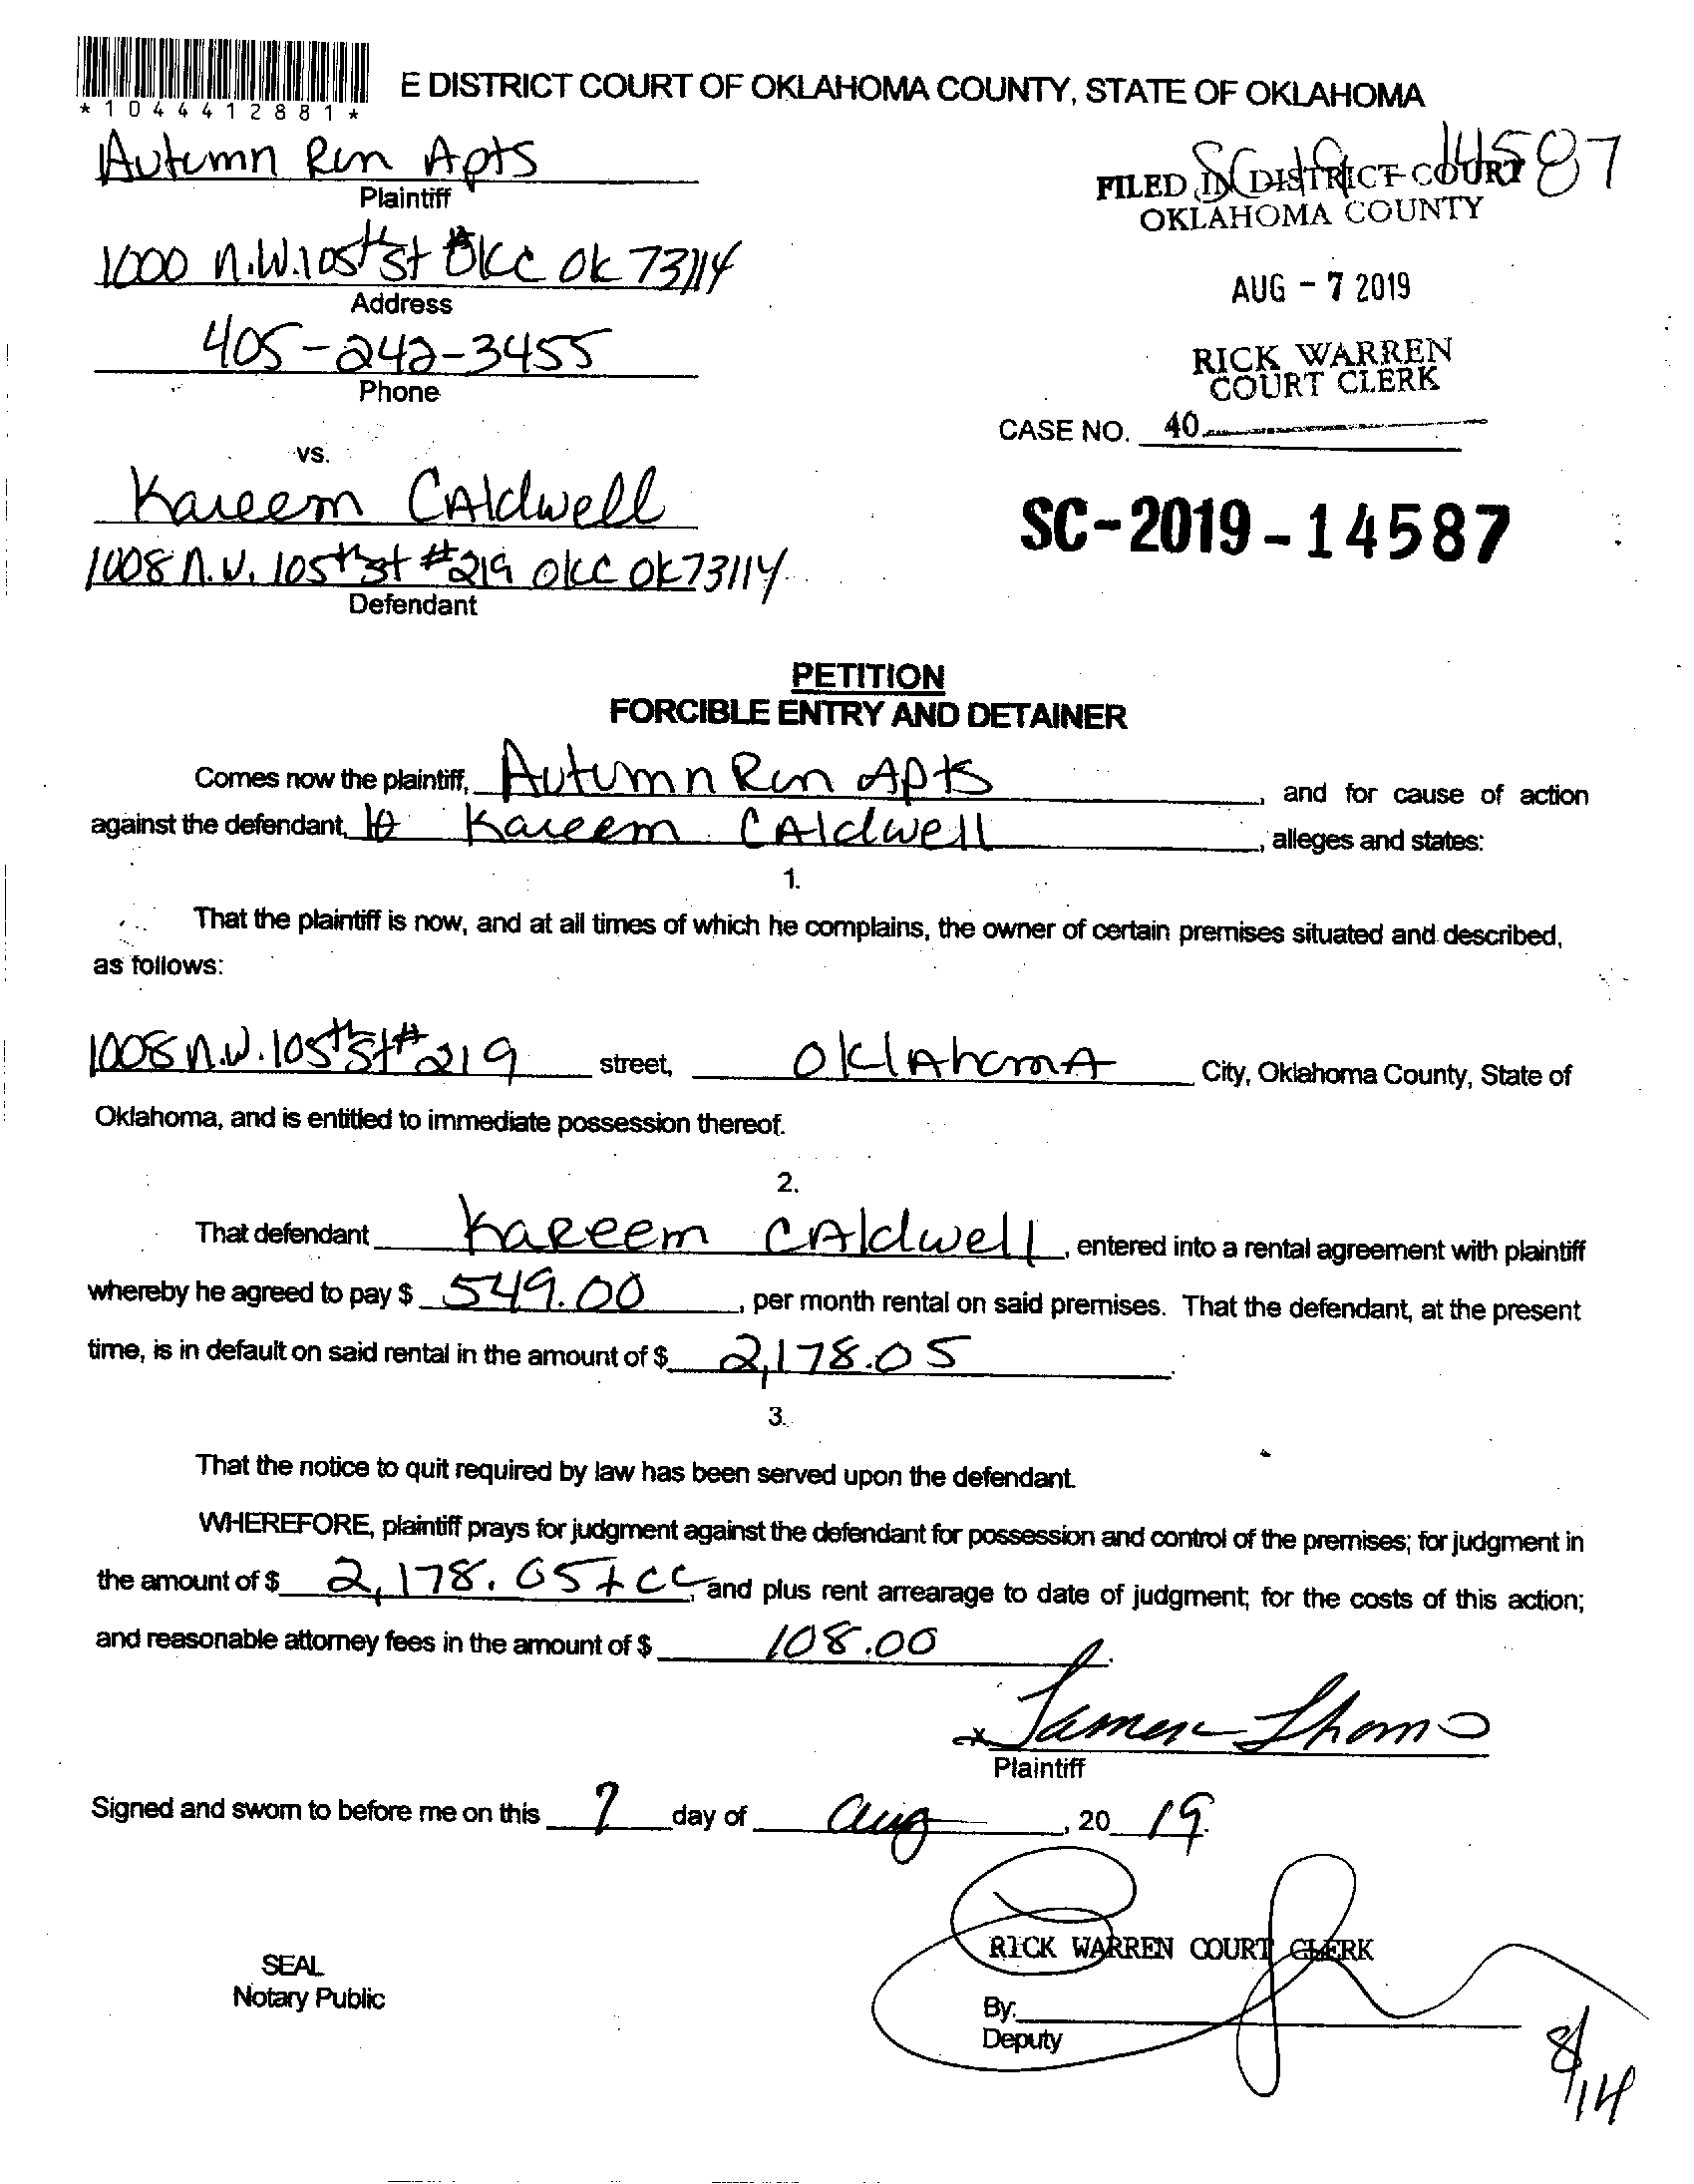 *1044412881*
E DISTRICT COURT OF OKLAHOMA COUNTY, STATE OF OKLAHOMA
Autumn Run Apts
Plaintiff
SC 19 14587
FILED IN DISTRICT COURT
OKLAHOMA COUNTY
1000 N.W. 105th St OKC OK 73114
Address
AUG - 7 2019
405-242-3455
Phone
RICK WARREN
COURT CLERK
CASE NO. 40
vs.
Kareem CAldwell
SC-2019-14587
1008 N.W. 105th St #219 OKC OK 73114
Defendant
PETITION
FORCIBLE ENTRY AND DETAINER
Comes now the plaintiff, Autumn Run Apts, and for cause of action
against the defendant, Kareem CAldwell, alleges and states:
1.
That the plaintiff is now, and at all times of which he complains, the owner of certain premises situated and described,
as follows:
1008 N.W. 105th St # 219 street, OklAhomA City, Oklahoma County, State of
Oklahoma, and is entitled to immediate possession thereof.
2.
That defendant KaReem CAldwell, entered into a rental agreement with plaintiff
whereby he agreed to pay $ 549.00, per month rental on said premises. That the defendant, at the present
time, is in default on said rental in the amount of $ 2,178.05.
3.
That the notice to quit required by law has been served upon the defendant.
WHEREFORE, plaintiff prays for judgment against the defendant for possession and control of the premises; for judgment in
the amount of $ 2,178.05 + CC, and plus rent arrearage to date of judgment; for the costs of this action;
and reasonable attorney fees in the amount of $ 108.00.
x
Plaintiff
Signed and sworn to before me on this 7 day of Aug, 20 19.
RICK WARREN COURT CLERK
SEAL
Notary Public
By:
Deputy
8/14